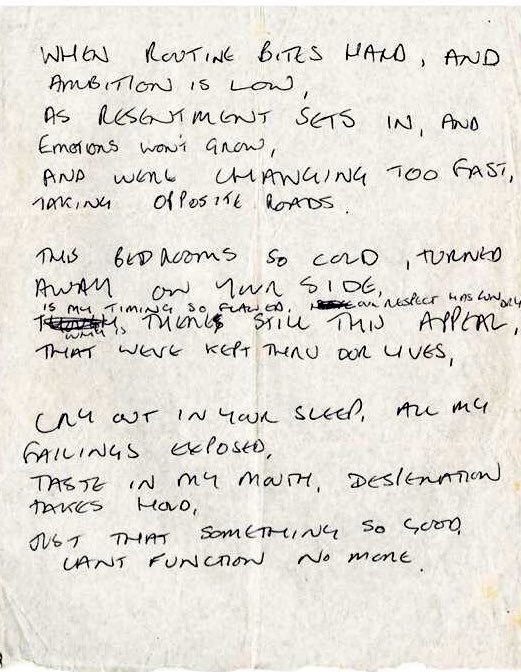 WHEN ROUTINE BITES HARD, AND
AMBITION IS LOW,
AS RESENTMENT SETS IN, AND
EMOTIONS WON'T GROW,
AND WERE CHANGING TOO FAST,
TAKING OPPOSITE ROADS.
THIS BEDROOMS SO COLD, TURNED
AWAY ON YOUR SIDE,
IS MY TIMING SO FLAWED, OUR RESPECT HAS RUN DRY
WHY, THERES STILL THIS APPEAL,
THAT WEVE KEPT THRU OUR LIVES,
CRY OUT IN YOUR SLEEP, ALL MY
FAILINGS EXPOSED,
TASTE IN MY MOUTH, DESPERATION
TAKES HOLD,
JUST THAT SOMETHING SO GOOD,
CANT FUNCTION NO MORE.